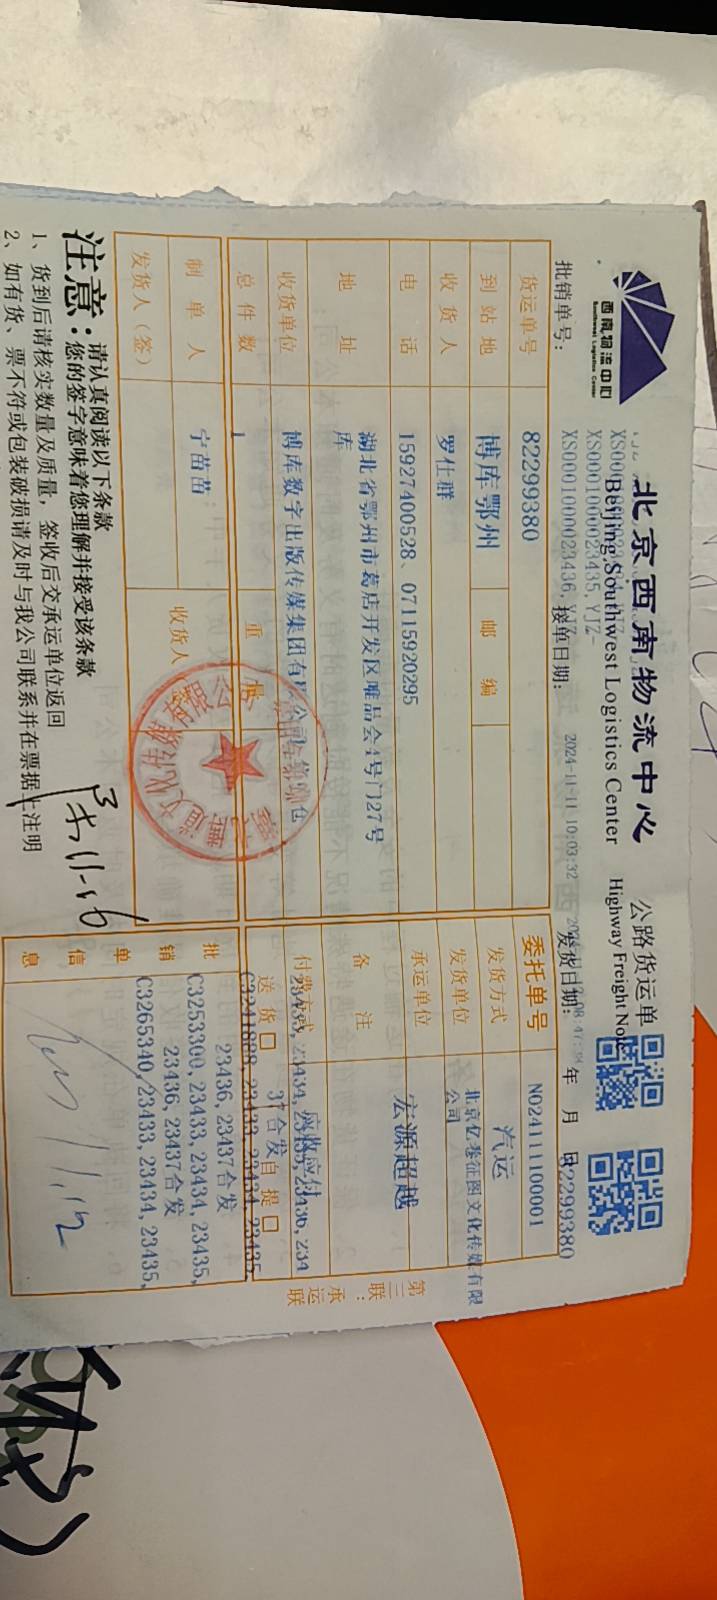 西南物流中心
Southwest Logistics Center
北京西南物流中心
Beijing Southwest Logistics Center
公路货运单
Highway Freight Note
批销单号:
XS0001000023435, YJZ-
XS0001000023436, YJZ-
接单日期:
2024-11-11 10:03:32
发货日期:
年 月 日
82299380
货运单号
82299380
委托单号
N02411100001
到站地
博库鄂州
邮编
发货方式
汽运
收货人
罗仕群
发货单位
北京亿卷征图文化传媒有限
公司
电话
15927400528、07115920295
承运单位
宏源超越
地址
湖北省鄂州市葛店开发区唯品会4号门27号
库
备注
收货单位
博库数字出版传媒集团有限公司
付费方式
应收应付
23433, 23434, 23435, 23436, 234
37合发
总件数
1
重量
送货□
自提□
制单人
宁苗苗
收货人
发货人(签)
批销单信息
C3241888, 23433, 23434, 23435,
23436, 23437合发
C3253300, 23433, 23434, 23435,
23436, 23437合发
C3265340, 23433, 23434, 23435,
第三联:承运联
注意:
请认真阅读以下条款
您的签字意味着您理解并接受该条款
1、货到后请核实数量及质量，签收后交承运单位返回
2、如有货、票不符或包装破损请及时与我公司联系并在票据上注明